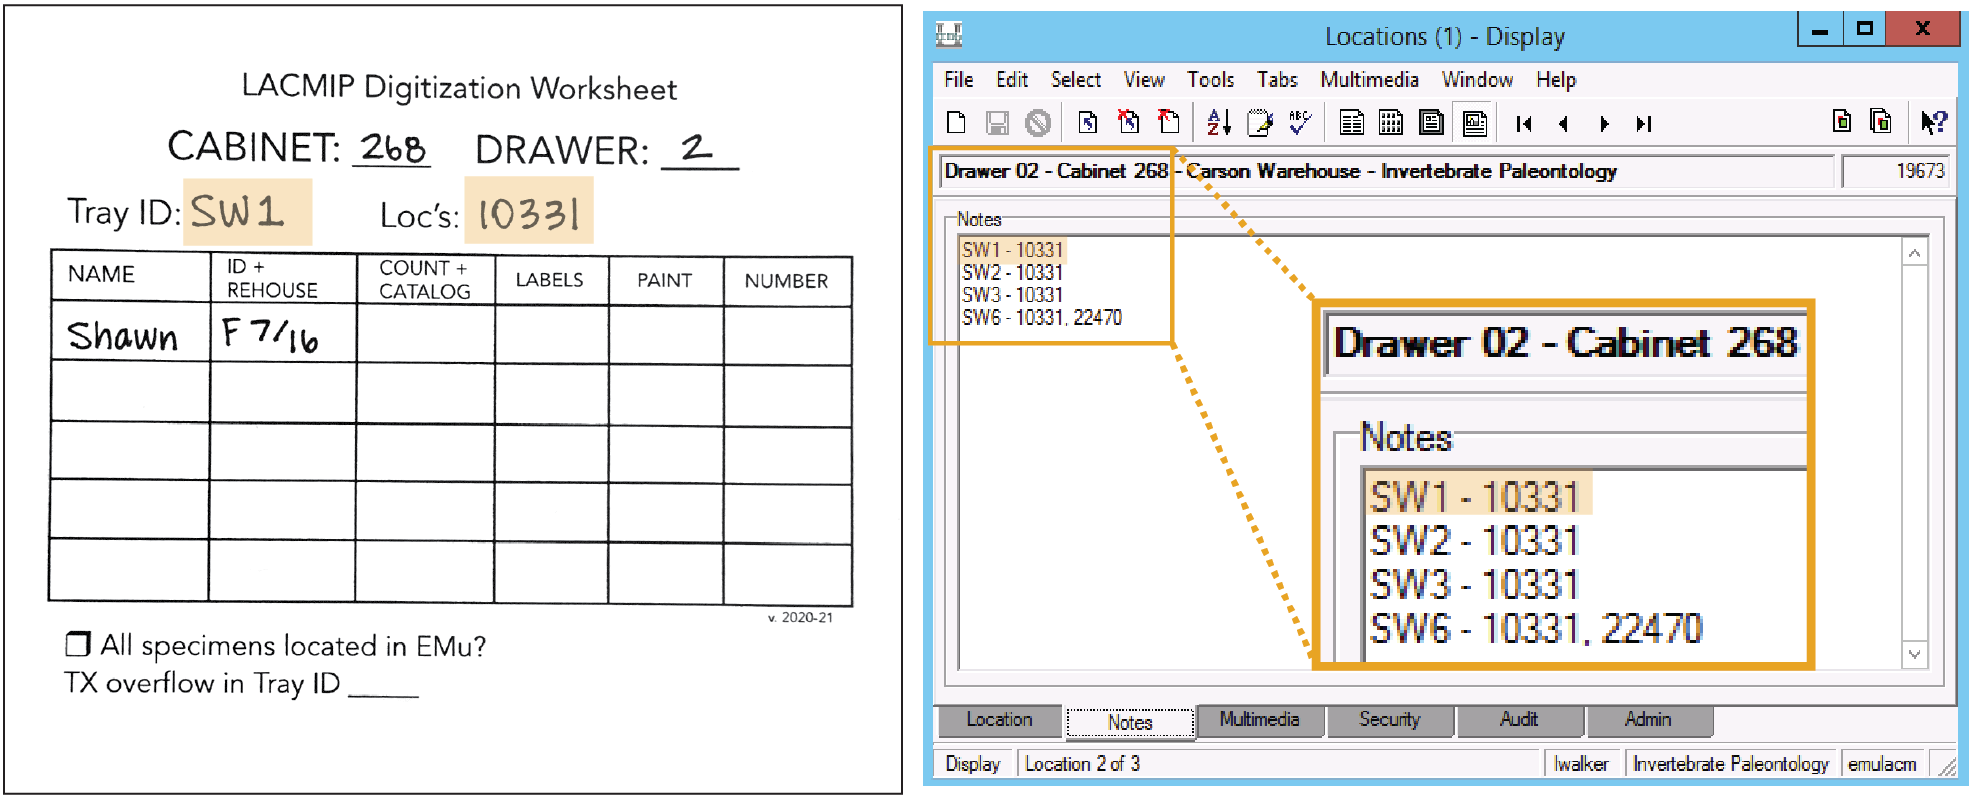 LACMIP Digitization Worksheet
CABINET: 268 DRAWER: 2
Tray ID: SW1 Loc's: 10331
NAME ID + REHOUSE COUNT + CATALOG LABELS PAINT NUMBER
Shawn F 7/16
v. 2020-21
All specimens located in EMu?
TX overflow in Tray ID
Locations (1) - Display
File Edit Select View Tools Tabs Multimedia Window Help
Drawer 02 - Cabinet 268 - Carson Warehouse - Invertebrate Paleontology 19673
Notes
SW1 - 10331
SW2 - 10331
SW3 - 10331
SW6 - 10331, 22470
Drawer 02 - Cabinet 268
Notes
SW1 - 10331
SW2 - 10331
SW3 - 10331
SW6 - 10331, 22470
Location Notes Multimedia Security Audit Admin
Display Location 2 of 3 lwalker Invertebrate Paleontology emulacm